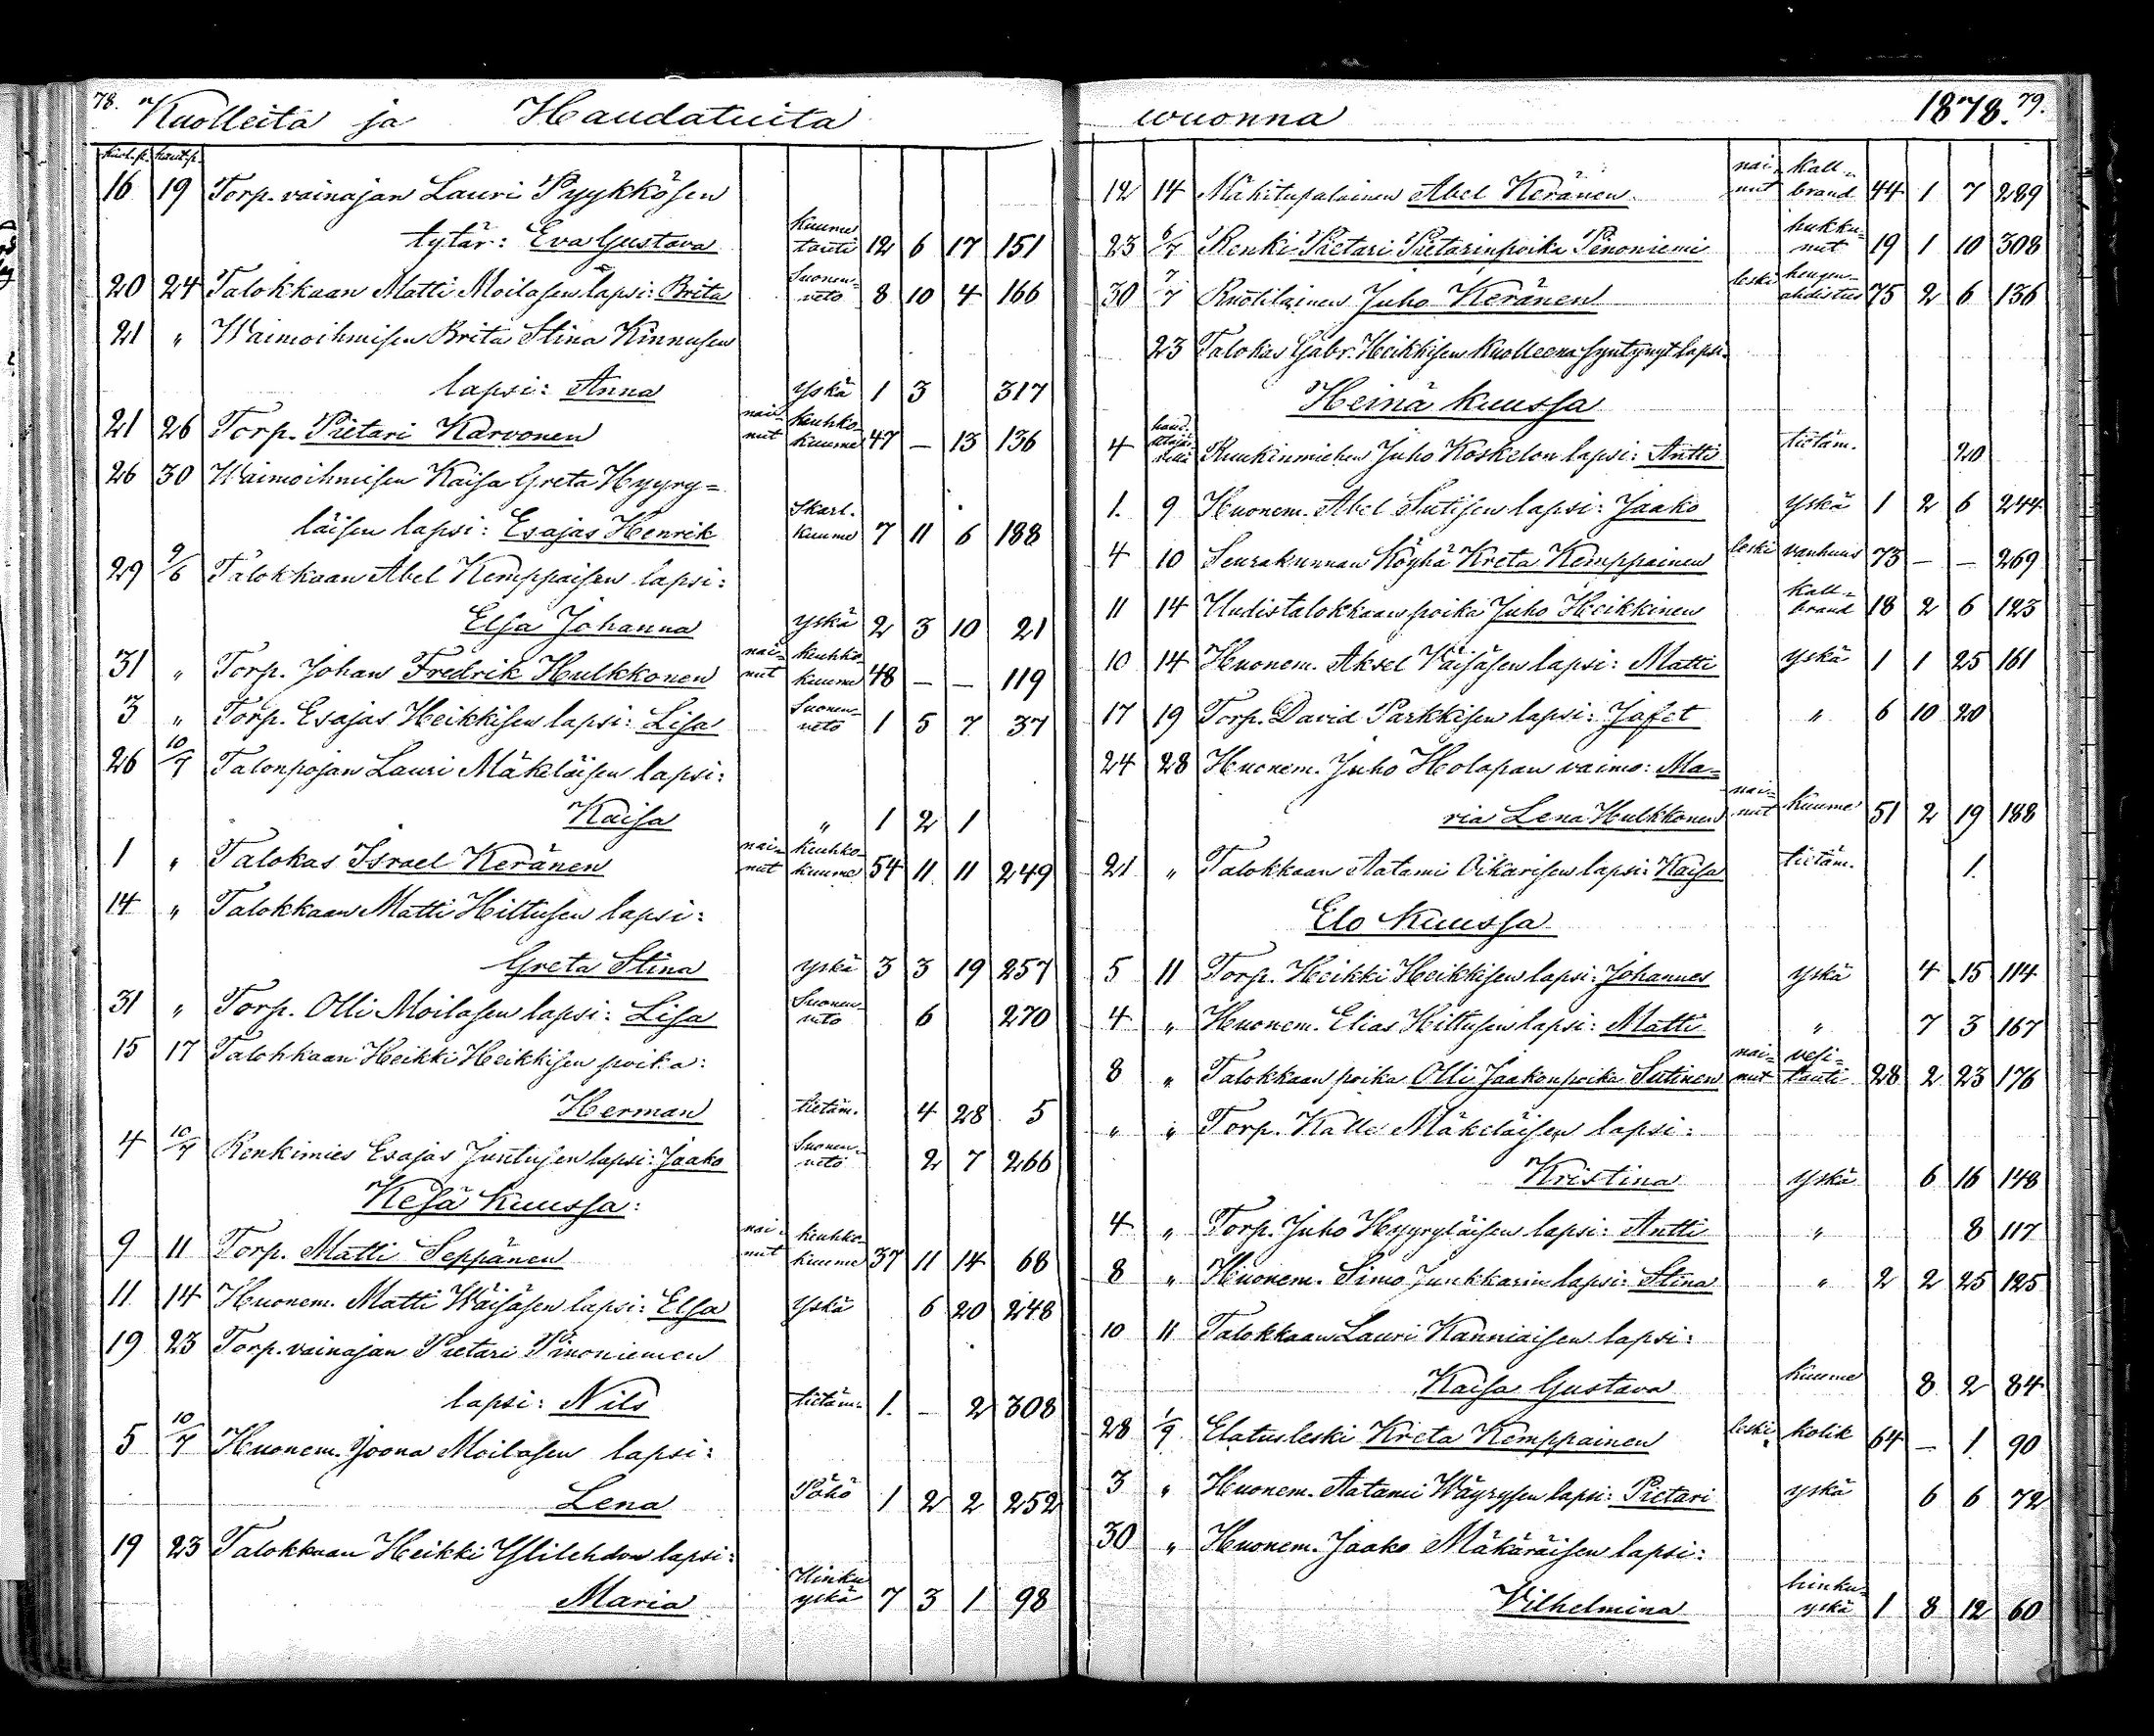 78. Kuolleita ja Haudatuita
kuol.p. haut.p.
16 19 Torp. vainajan Lauri Pyykkösen
tytär: Eva Gustava kuume tauti 12 6 17 151
20 24 Talokkaan Matti Moilasen lapsi: Brita Suonen- veto 8 10 4 166
21 " Waimoihmisen Brita Stina Kinnusen
lapsi: Anna Yskä 1 3 317
21 26 Torp. Pietari Karvonen nai- nut keuhko- kuume 47 – 13 136
26 30 Waimoihmisen Kaisa Greta Hyyry=
läisen lapsi: Esajas Henrik Skarl. kuume 7 11 6 188
29 9/6 Talokkaan Abel Kemppaisen lapsi:
Elsa Johanna yskä 2 3 10 21
31 " Torp. Johan Fredrik Hulkkonen nai- nut keuhko- kuume 48 – – 119
3 " Torp. Esajas Heikkisen lapsi: Lisa Suonen- veto 1 5 7 37
26 10/7 Talonpojan Lauri Mäkeläisen lapsi:
Kaisa " 1 2 1
1 " Talokas Israel Keränen nai- nut keuhko- kuume 54 11 11 249
14 " Talokkaan Matti Hiltusen lapsi:
Greta Stina yskä 3 3 19 257
31 " Torp. Olli Moilasen lapsi: Lisa Suonen- veto 6 270
15 17 Talokkaan Heikki Heikkisen poika:
Herman tietäm. 4 28 5
4 10/7 Renkimies Esajas Juntusen lapsi: Jaako Suonen- veto 2 7 266
Kesä kuussa:
9 11 Torp. Matti Seppänen nai- nut keuhko- kuume 37 11 14 68
11 14 Huonem. Matti Wäisäsen lapsi: Elsa Yskä 6 20 248
19 23 Torp. vainajan Pietari Pinoniemen
lapsi: Nils tietäm. 1. – 2 308
5 10/7 Huonem. Joona Moilasen lapsi:
Lena Pöhö 1 2 2 252
19 23 Talokkaan Heikki Ylilehdon lapsi:
Maria Hinku yskä 7 3 1 98
wuonna 1878. 79.
12 14 Mäkitupalainen Abel Keränen nai- nut kall- brand 44 1 7 289
23 6/7 Renki Pietari Pietarinpoika Pinoniemi hukku= nut 19 1 10 308
30 7/7 Ruotilainen Juho Keränen leski hengen- ahdistus 75 2 6 136
23 Talokas Gabr. Heikkisen kuolleena syntynyt lapsi.
Heinä kuussa
4 Ruukinmiehen Juho Koskelon lapsi: Antti tietäm. 20
1. 9 Huonem. Abel Sutisen lapsi: Jaako yskä 1 2 6 244
4 10 Seurakunnan Köyhä Kreta Kemppainen leski vanhuus 73 – – 269
11 14 Uudistalokkaan poika Juho Heikkinen kall- brand 18 2 6 123
10 14 Huonem. Aksel Väisäsen lapsi: Matti yskä 1 1 25 161
17 19 Torp. David Parkkisen lapsi: Jafet " 6 10 20
24 28 Huonem. Juho Holapan vaimo: Ma=
ria Lena Hulkkonen nai- nut kuume 51 2 19 188
21 " Talokkaan Aatami Oikarisen lapsi: Kaisa tietäm. 1.
Elo Kuussa
5 11 Torp. Heikki Heikkisen lapsi: Johannes yskä 4 15 114
4 " Huonem. Elias Hiltusen lapsi: Matti " 7 3 167
8 " Talokkaan poika Olli Jaakonpoika Sutinen nai= nut vesi= tauti 28 2 23 176
" " Torp. Kalle Mäkeläisen lapsi:
Kristina yskä 6 16 148
4 " Torp. Juho Hyyryläisen lapsi: Antti " 8 117
8 " Huonem. Simo Junkkarin lapsi: Stina " 2 2 25 125
10 11 Talokkaan Lauri Kanniaisen lapsi:
Kaisa Gustava kuume 8 2 84
28 1/9 Elatusleski Kreta Kemppainen leski kolik 64 – 1. 90
3 " Huonem. Aatami Wäyrysen lapsi: Pietari yskä 6 6 72
30 " Huonem. Jaako Mäkäräisen lapsi:
Vilhelmina hinku- yskä 1 8 12 60